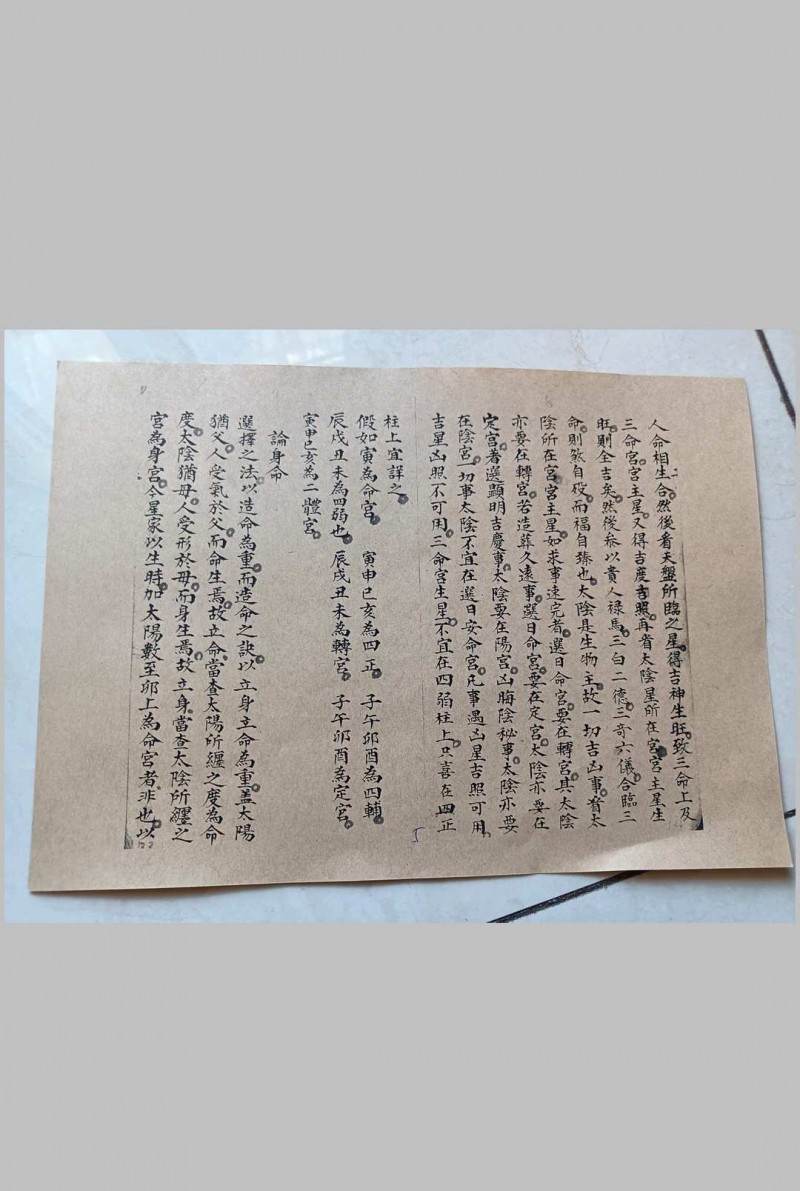 人命相生合。然後看天盤所臨之星。得吉神生旺。致三命上及
三命宮。宮主星。又得吉度吉照。再看太陰星所在宮。宮主星生
旺。則全吉矣。然後參以貴人祿馬。三白二德。三奇六儀。合臨三
命。則煞自殁。而福自臻也。太陰是生物主。故一切吉凶事。看太
陰所在宮。宮主星。如求事速完者。選日命宮。要在轉宮。其太陰
亦要在轉宮。若造葬久遠事。選日命宮。要在定宮。太陰亦要在
定宮。若選顯明吉慶事。太陰要在陽宮。凶晦陰秘事。太陰亦要
在陰宮。一切事太陰不宜在選日安命宮。凡事遇凶星吉照可用。
吉星凶照不可用。三命宮生星。不宜在四弱柱上。只喜在四正
柱上宜詳之。
假如寅為命宮。 寅申巳亥為四正 子午卯酉為四輔。
辰戌丑未為四弱也。 辰戌丑未為轉宮。 子午卯酉為定宮。
寅申巳亥為二體宮。
論身命
選擇之法。以造命為重。而造命之訣。以立身立命為重。蓋太陽
猶父。人受氣於父。而命生焉。故立命。當查太陽所纏之度為命
度。太陰猶母。人受形於母。而身生焉。故立身。當查太陰所纏之
宮為身宮。今星家以生時加太陽。數至卯上為命宮者。非也。以
5